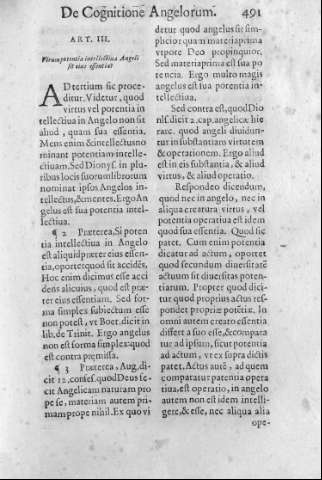 De Cognitione Angelorum. 491
ART. III.
Vtrum potentia intellectiua Angeli
sit eius essentia
AD tertium sic proce-
ditur. Videtur, quod
virtus vel potentia in-
tellectiua in Angelo non sit
aliud, quam sua essentia.
Mens enim & intellectus no
minant potentiam intelle-
ctiuam. Sed Dionys. in plu-
ribus locis suorum librorum
nominat ipsos Angelos in-
tellectus, & mentes. Ergo An
gelus est sua potentia intel-
lectiua.
¶ 2 Præterea, Si poten
tia intellectiua in Angelo
est aliquid præter eius essen-
tia, oportet quod sit accidēs,
Hoc enim dicimus esse acci
dens alicuius, quod est præ-
ter eius essentiam. Sed for-
ma simplex subiectum esse
non potest, vt Boet. dicit in
lib. de Trinit. Ergo angelus
non est forma simplex: quod
est contra præmissa.
¶ 3 Præterea, Aug. di-
cit 12. confes. quod Deus fe-
cit Angelicam naturam pro
pe se, materiam autem pri-
mam prope nihil. Ex quo vi
detur quod angelus sit sim-
plicior quam materia prima
vtpote Deo propinquior.
Sed materia prima est sua po
tencia. Ergo multo magis
angelus est sua potentia in-
tellectiua.
Sed contra est, quod Dio
nis. dicit 2. cap. angelicæ hie
rarc. quod angeli diuidun-
tur in substantiam virtutem
& operationem. Ergo aliud
est in eis substantia, & aliud
virtus, & aliud operatio.
Respondeo dicendum,
quod nec in angelo, nec in
aliqua creatura virtus, vel
potentia operatiua est idem
quod sua essentia. Quod sic
patet. Cum enim potentia
dicatur ad actum, oportet
quod secundum diuersitatē
actuum sit diuersitas poten-
tiarum. Propter quod dici-
tur quod proprius actus res-
pondet propriæ potētiæ. In
omni autem creato essentia
differt a suo esse, & compara
tur ad ipsum, sicut potentia
ad actum, vt ex supra dictis
patet. Actus autē, ad quem
comparatur potentia opera
tiua, est operatio, in angelo
autem non est idem intelli-
gere, & esse, nec aliqua alia
ope-